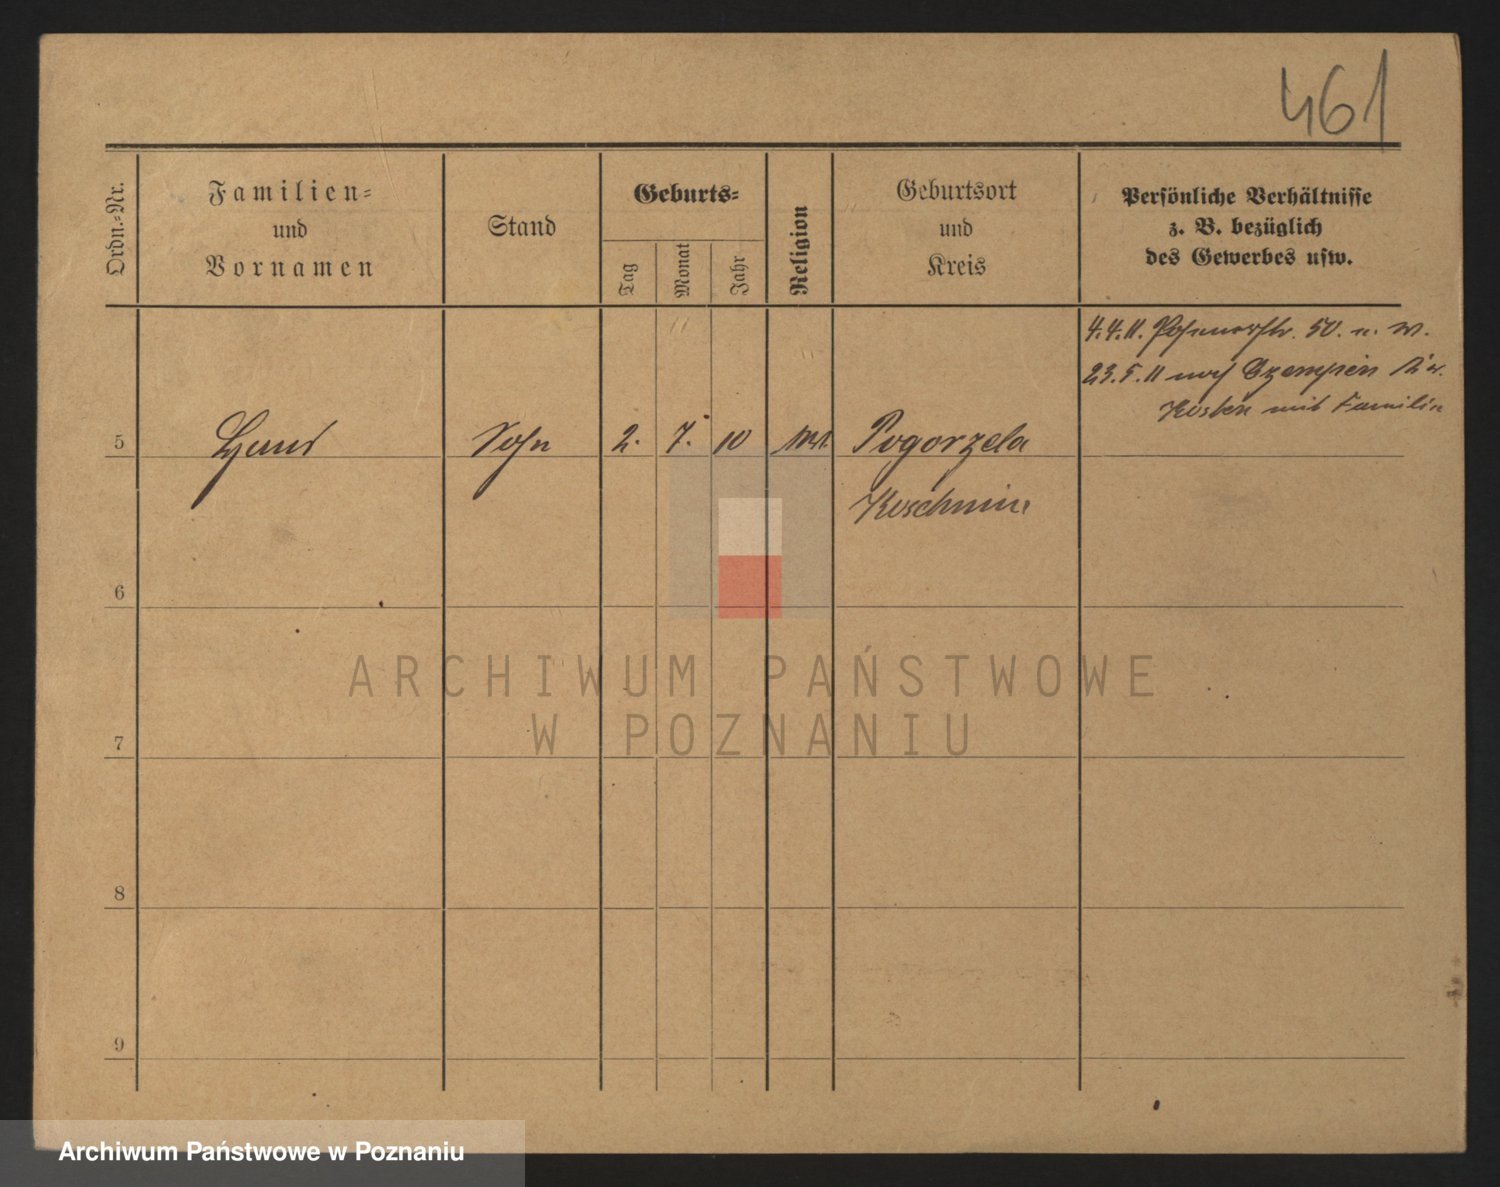 461
Ordn.-Nr.
Familien-
und
Vornamen
Stand
Geburts-
Tag
Monat
Jahr
Religion
Geburtsort
und
Kreis
Persönliche Verhältnisse
z. B. bezüglich
des Gewerbes usw.
4.4.11. Posenerstr. 50. n. W.
23.5.11 nach Czempin Kr.
Kosten mit Familie
5 Hans Sohn 2. 7. 10 Pogorzela
Koschmin
6
7
8
9
ARCHIWUM PAŃSTWOWE
W POZNANIU
Archiwum Państwowe w Poznaniu